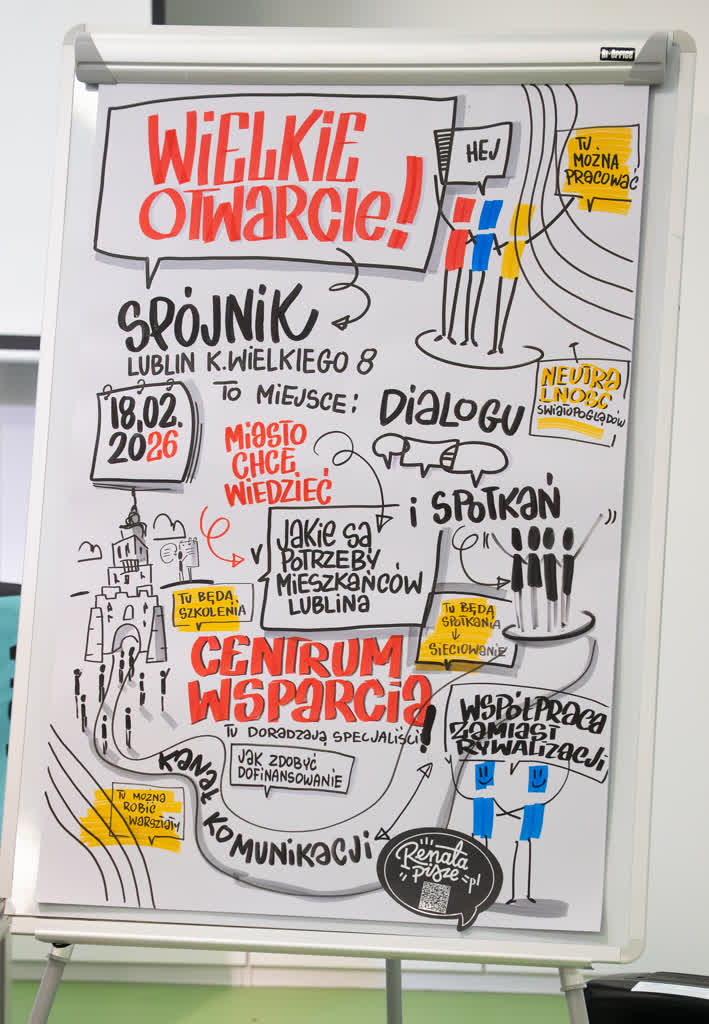 Bi-OFFICE
WIELKIE
OTWARCIE!
HEJ
TU
MOŻNA
PRACOWAĆ
SPÓJNIK
LUBLIN K.WIELKIEGO 8
TO MIEJSCE:
DIALOGU
NEUTRA
LNOŚĆ
ŚWIATOPOGLĄDÓW
18.02.
2026
MIASTO
CHCE
WIEDZIEĆ
I SPOTKAŃ
JAKIE SĄ
POTRZEBY
MIESZKAŃCÓW
LUBLINA
TU BĘDĄ
SZKOLENIA
TU BĘDĄ
SPOTKANIA
SIECIOWANIE
CENTRUM
WSPARCIA!
TU DORADZAJĄ SPECJALIŚCI
JAK ZDOBYĆ
DOFINANSOWANIE
WSPÓŁPRACA
ZAMIAST
RYWALIZACJI
TU MOŻNA
ROBIĆ
WARSZTATY
KANAŁ KOMUNIKACJI
Renata
Pisze.pl